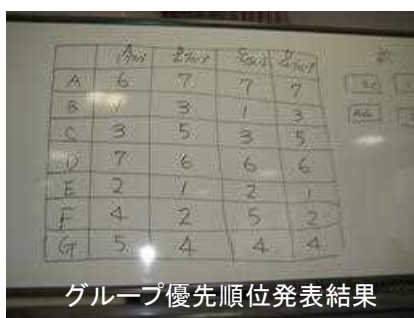 A 6 7 7 7
B 3 1 3
C 3 5 3 5
D 7 6 6 6
E 2 1 2 1
F 4 2 5 2
G 5 4 4 4
グループ優先順位発表結果